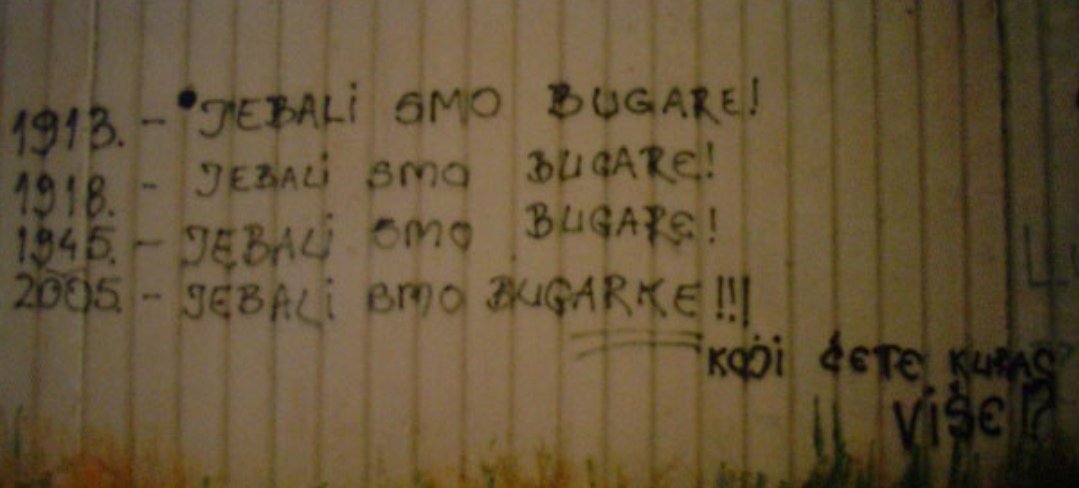 1913. - JEBALi SMO BUGARE!
1918. - JEBALi SMO BUGARE!
1945. - JEBALi SMO BUGARE!
2005. - JEBALi SMO BUGARKE!!!
KOJi ĆETE KURAC
ViŠE!?